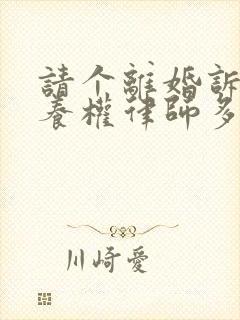 請个離婚訴
養權律師多
川崎愛